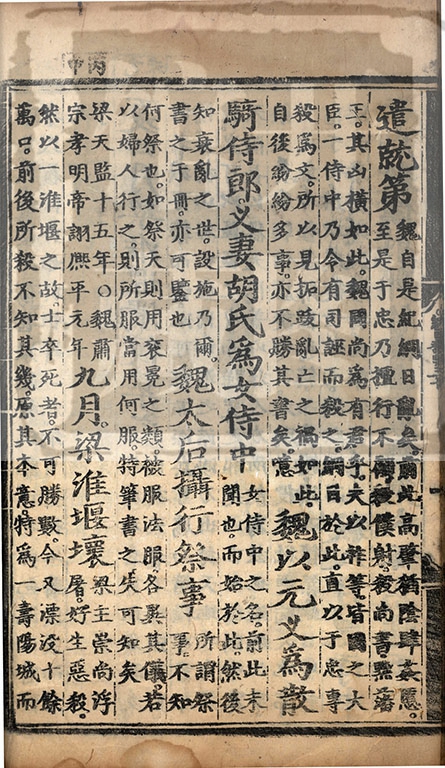 丙申
遣就第
魏自是紀綱日亂矣。爾此高肇猶陰肆姦慝。
至是于忠乃擅行不殺僕射。殺尚書黜藩
王。其凶橫如此。魏國尚爲有君乎。夫以等皆國之大
臣。一侍中乃令有司誣而殺之。綱目於此。直以于忠專
殺爲文。所以見拓跋亂亡之禍如此。
自後紛紛多事。亦不勝其書矣。噫
魏以元义爲散
騎侍郎。义妻胡氏爲女侍中
女侍中之名。前此未
聞也。而始於此。然後
知衰亂之世。設施乃爾。
書之于冊。亦可鑒也
魏太后攝行祭事
所謂祭
事不知
何祭也。如祭天則用衮冕之類。被服法服各異其儀。若
以婦人行之。則所服當用何服特筆書之失可知矣
梁天監十五年〇魏肅
宗孝明帝詡熙平元年
九月。梁淮堰壞
梁主崇尚浮
屠。好生惡殺。
然以一淮堰之故。士卒死者。不可勝數。今又漂没十餘
萬口前後所殺不知其幾。原其本意特爲一壽陽城而